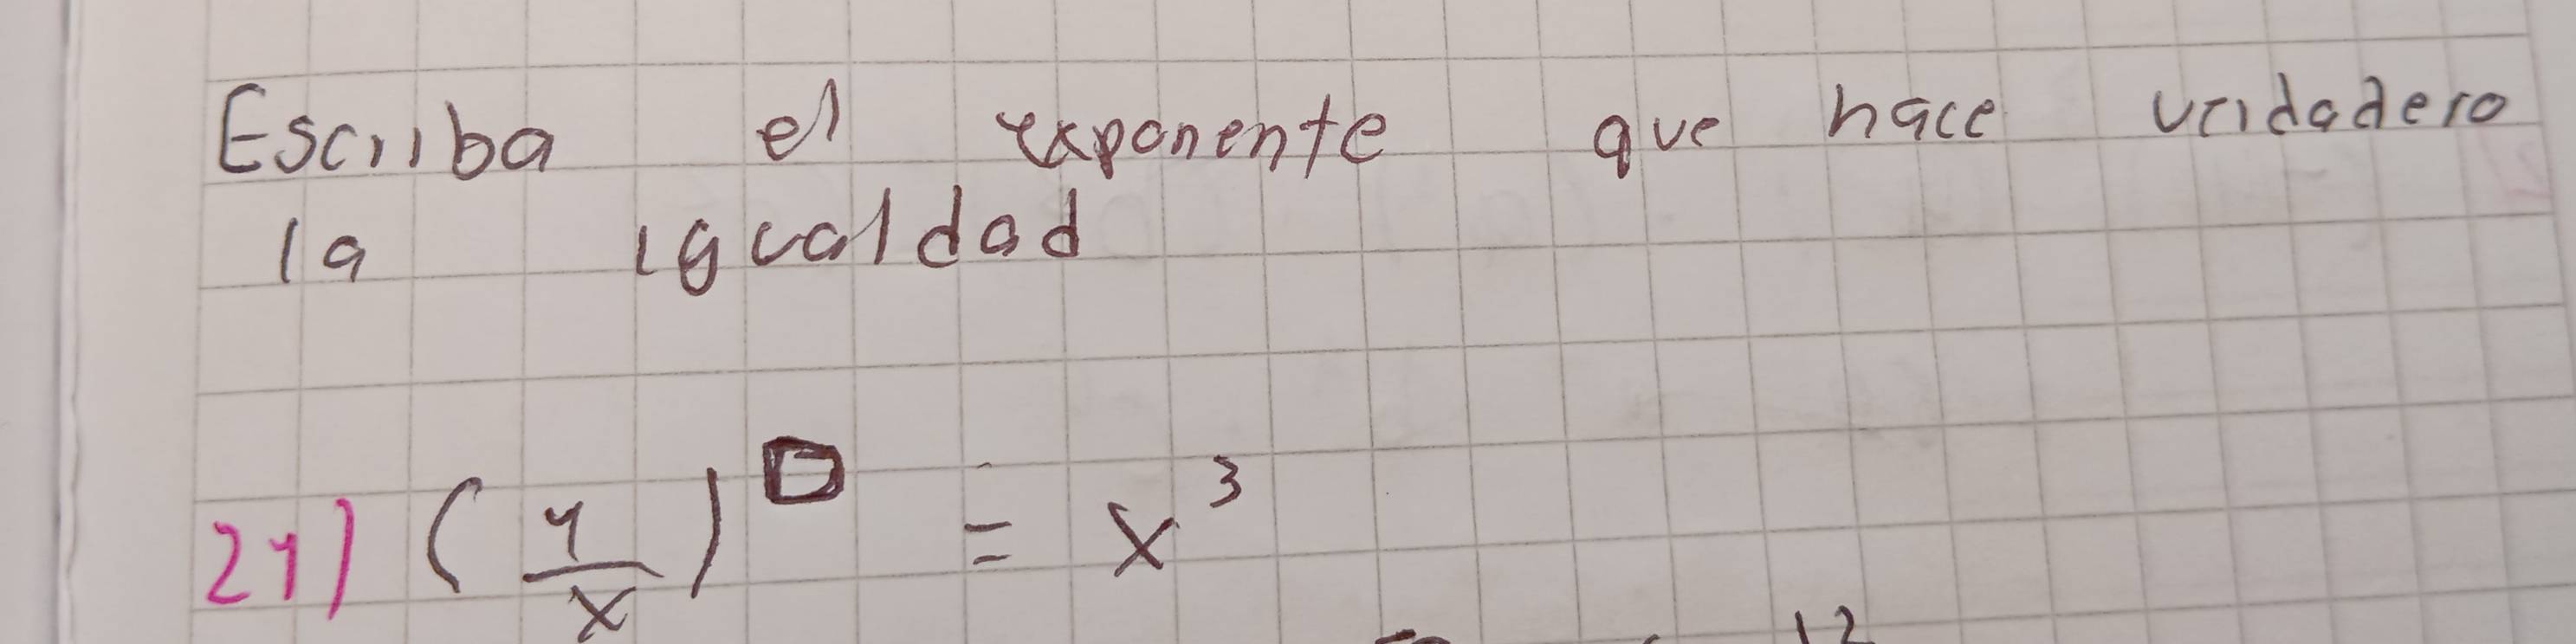 Escriba el exponente que hace verdadero
la igualdad
21) (1/x)^□ = x^3
12